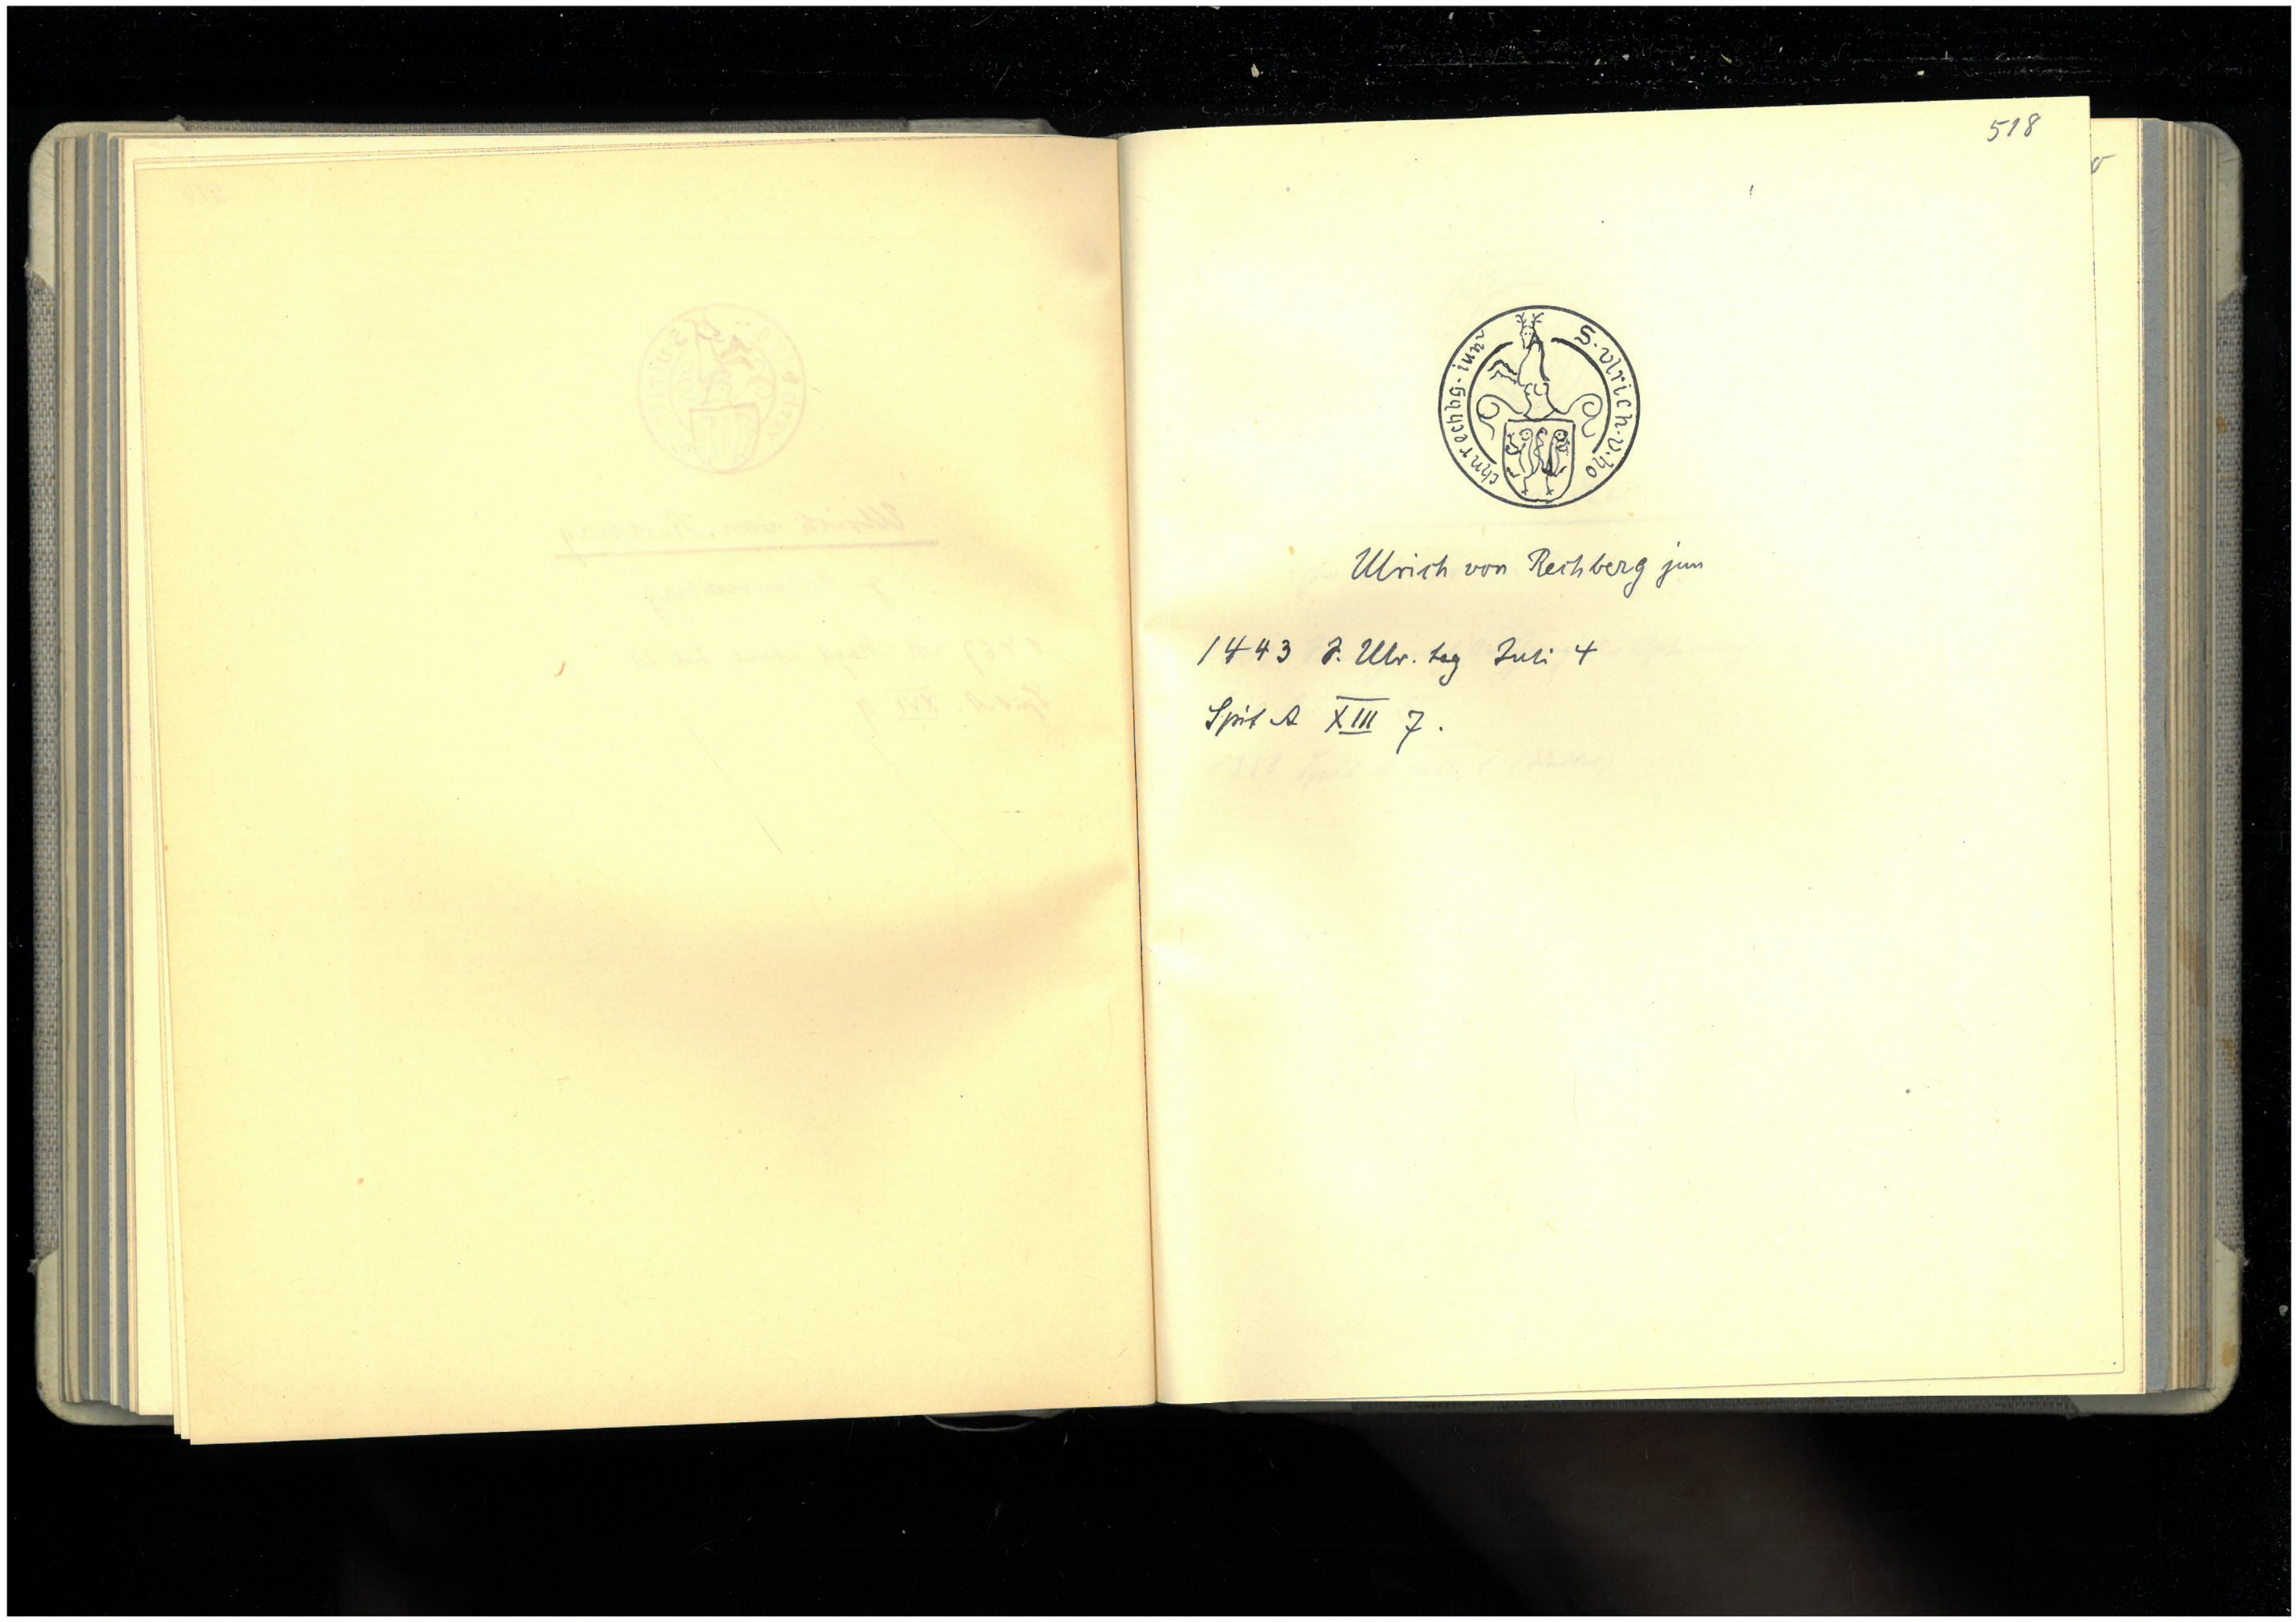 518
S · vlrich · v · ho
chnrechbg · iun
Ulrich von Rechberg jun
1443 J. Ulr. tag Juli 4
Spit A XIII 7.